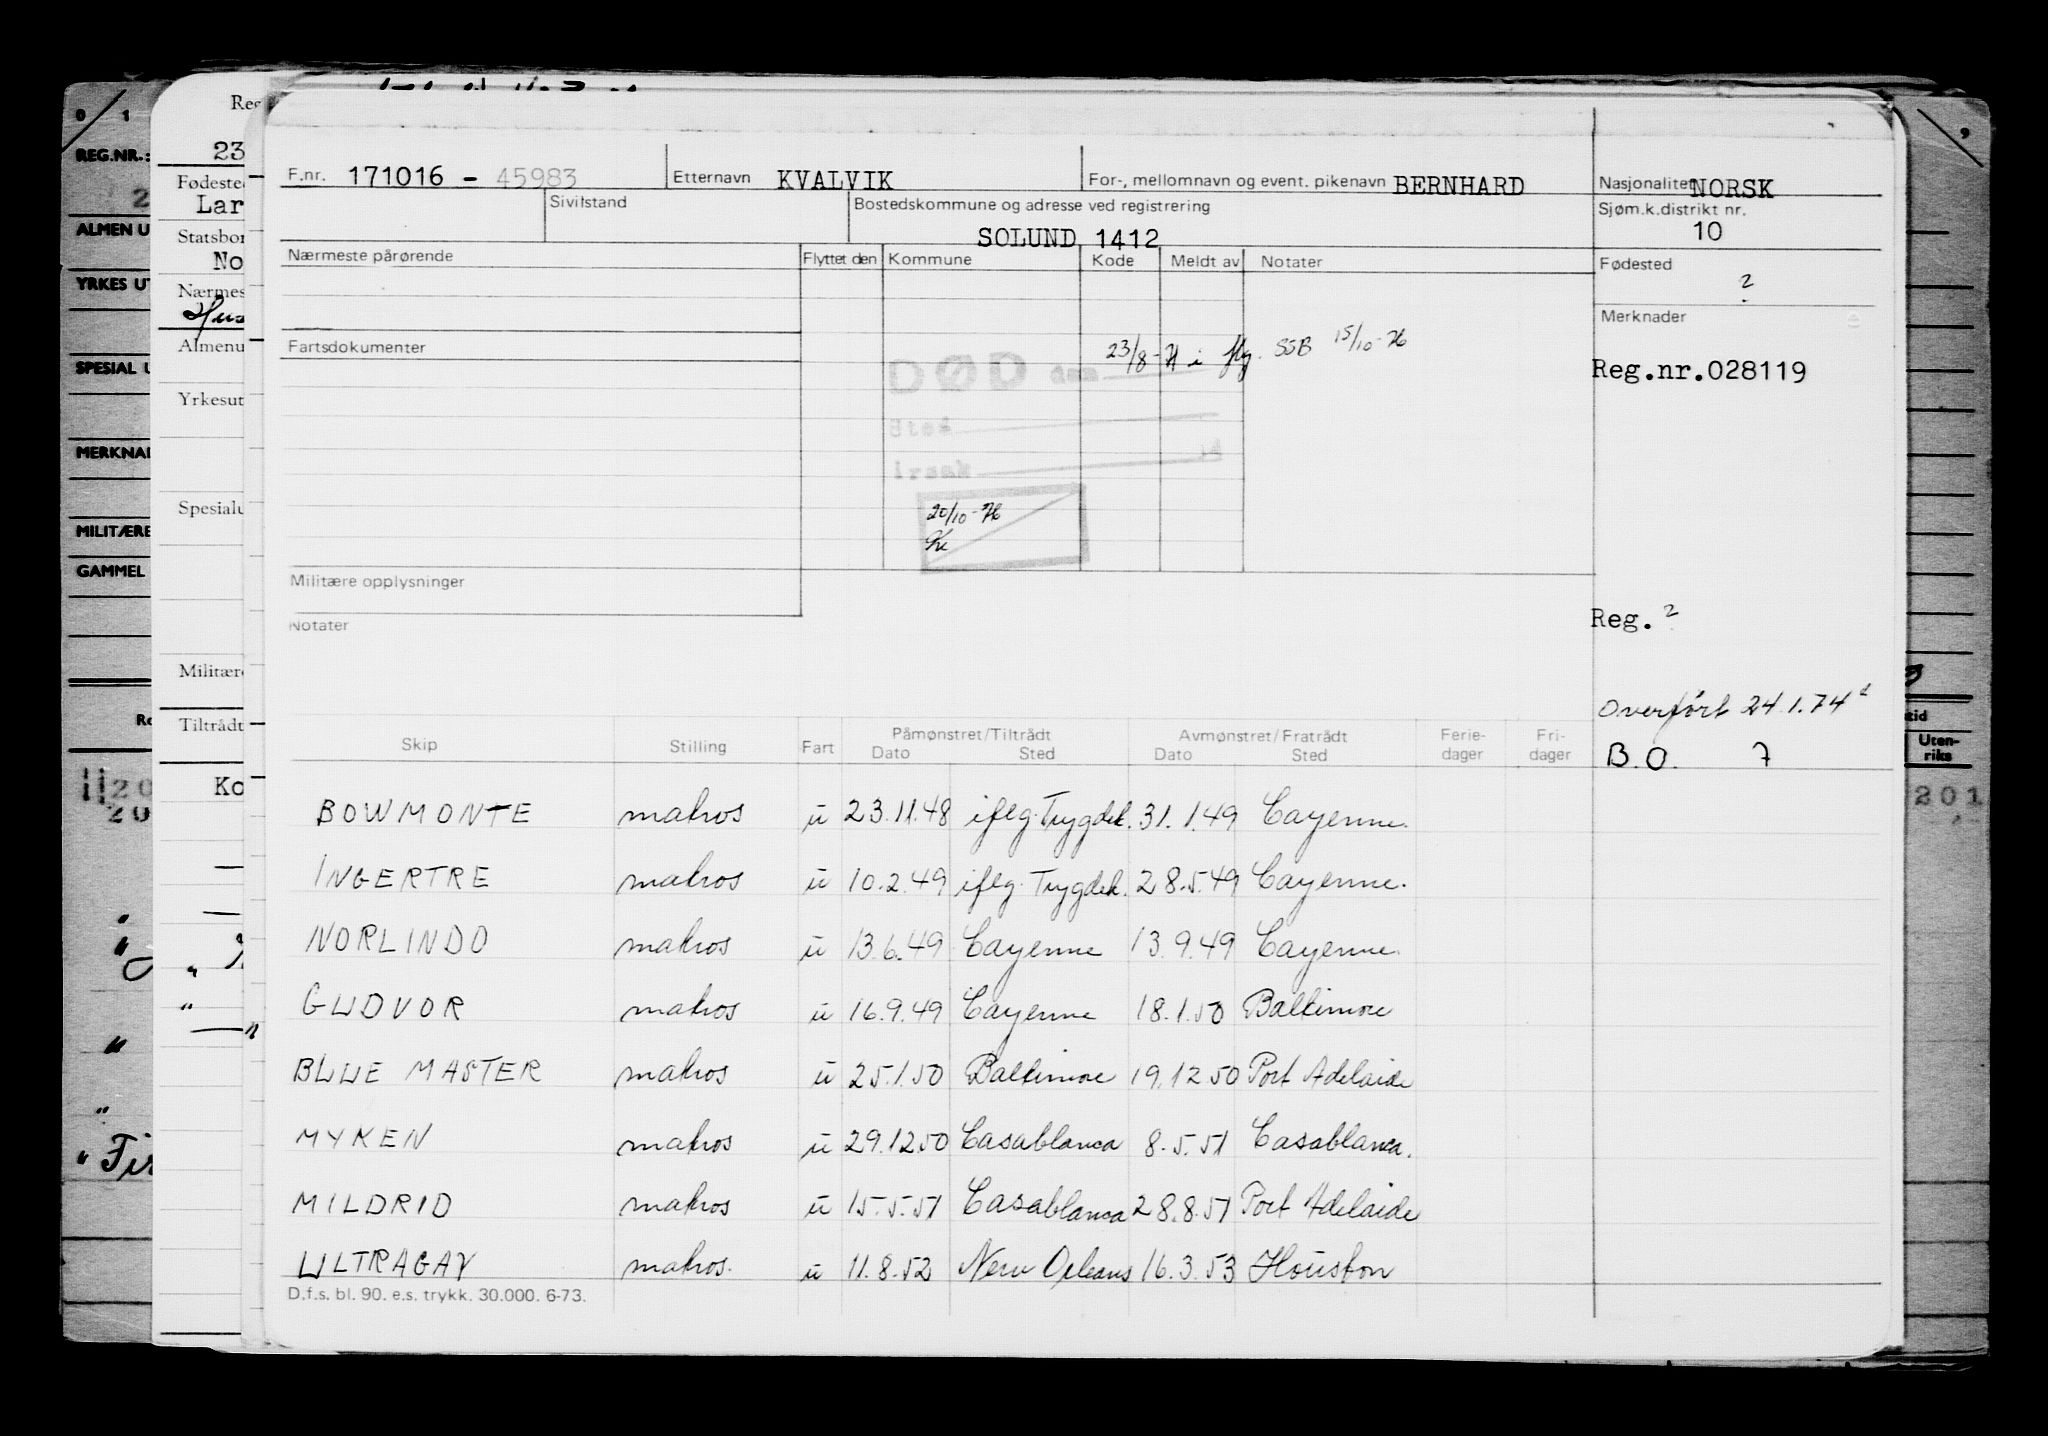 0 1
9
REG.NR.:
2
ALMEN U
YRKES UT
SPESIAL U
MERKNAD
MILITÆRE
GAMMEL
Reg
23
Fødested
Lar
Statsbor
No
Nærmes
Hus
Almenu
Yrkesut
Spesialu
Militære
Tiltrådt
Ko
F.nr. 171016 - 45983 Etternavn KVALVIK For-, mellomnavn og event. pikenavn BERNHARD Nasjonalitet NORSK
Sivilstand Bostedskommune og adresse ved registrering Sjøm.k.distrikt nr.
SOLUND 1412 10
Nærmeste pårørende Flyttet den Kommune Kode Meldt av Notater Fødested
?
Merknader
Fartsdokumenter DØD den 23/8-71 i flg. SSB 15/10-76
Reg.nr.028119
Sted
årsak
20/10-76
Militære opplysninger
Notater
Reg. ?
Overført 24.1.74
B.O. 7
Skip Stilling Fart Påmønstret/Tiltrådt Avmønstret/Fratrådt Ferie- Fri-
Dato Sted Dato Sted dager dager
BOWMONTE matros u 23.11.48 ifлg. Trygdek. 31.1.49 Cayenne.
INGERTRE matros u 10.2.49 iflg. Trygdek. 28.5.49 Cayenne.
NORLINDO matros u 13.6.49 Cayenne 13.9.49 Cayenne.
GUDVOR matros u 16.9.49 Cayenne 18.1.50 Baltimore
BLUE MASTER matros u 25.1.50 Baltimore 19.12.50 Port Adelaide
MYKEN matros u 29.12.50 Casablanca 8.5.51 Casablanca.
MILDRID matros u 15.5.51 Casablanca 28.8.51 Port Adelaide
ULTRAGAY matros. u 11.8.52 New Orleans 16.3.53 Houston
D.f.s. bl. 90. e.s. trykk. 30.000. 6-73.
tid
Uten-
riks
201